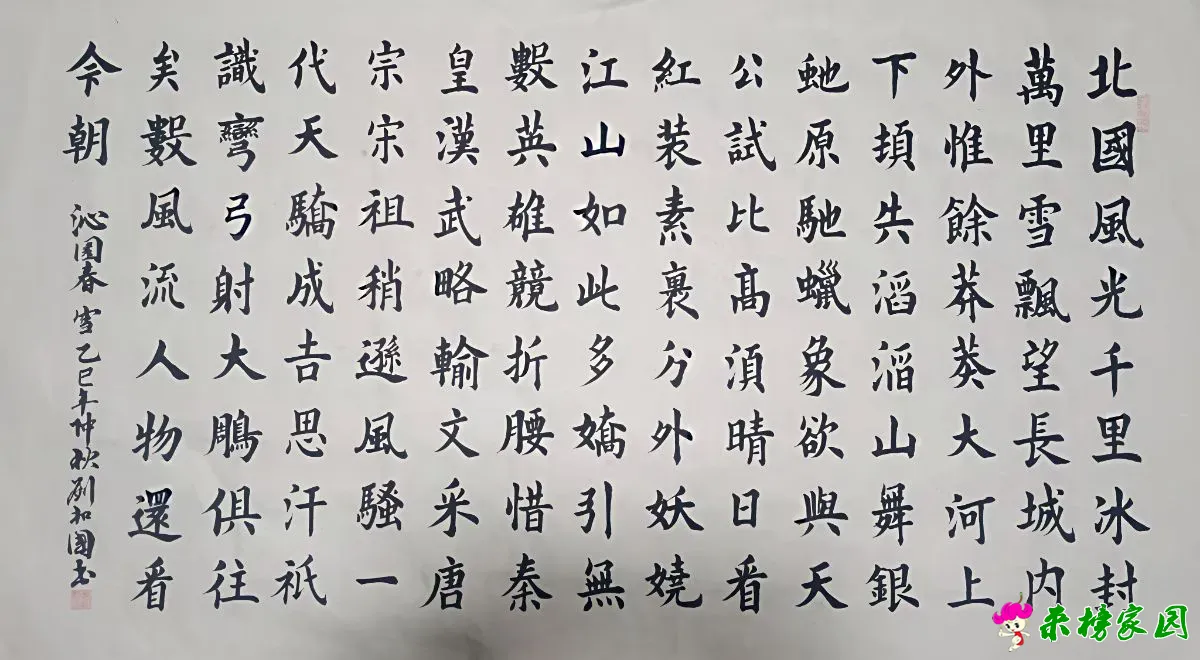 北國風光千里冰封
萬里雪飄望長城内
外惟餘莽莽大河上
下頓失滔滔山舞銀
虵原馳蠟象欲與天
公試比高須晴日看
紅装素裹分外妖嬈
江山如此多嬌引無
數英雄競折腰惜秦
皇漢武略輸文采唐
宗宋祖稍遜風騷一
代天驕成吉思汗祇
識彎弓射大鵰俱往
矣數風流人物還看
今朝
沁园春 雪 乙巳年仲秋刘和國书
来榜家园